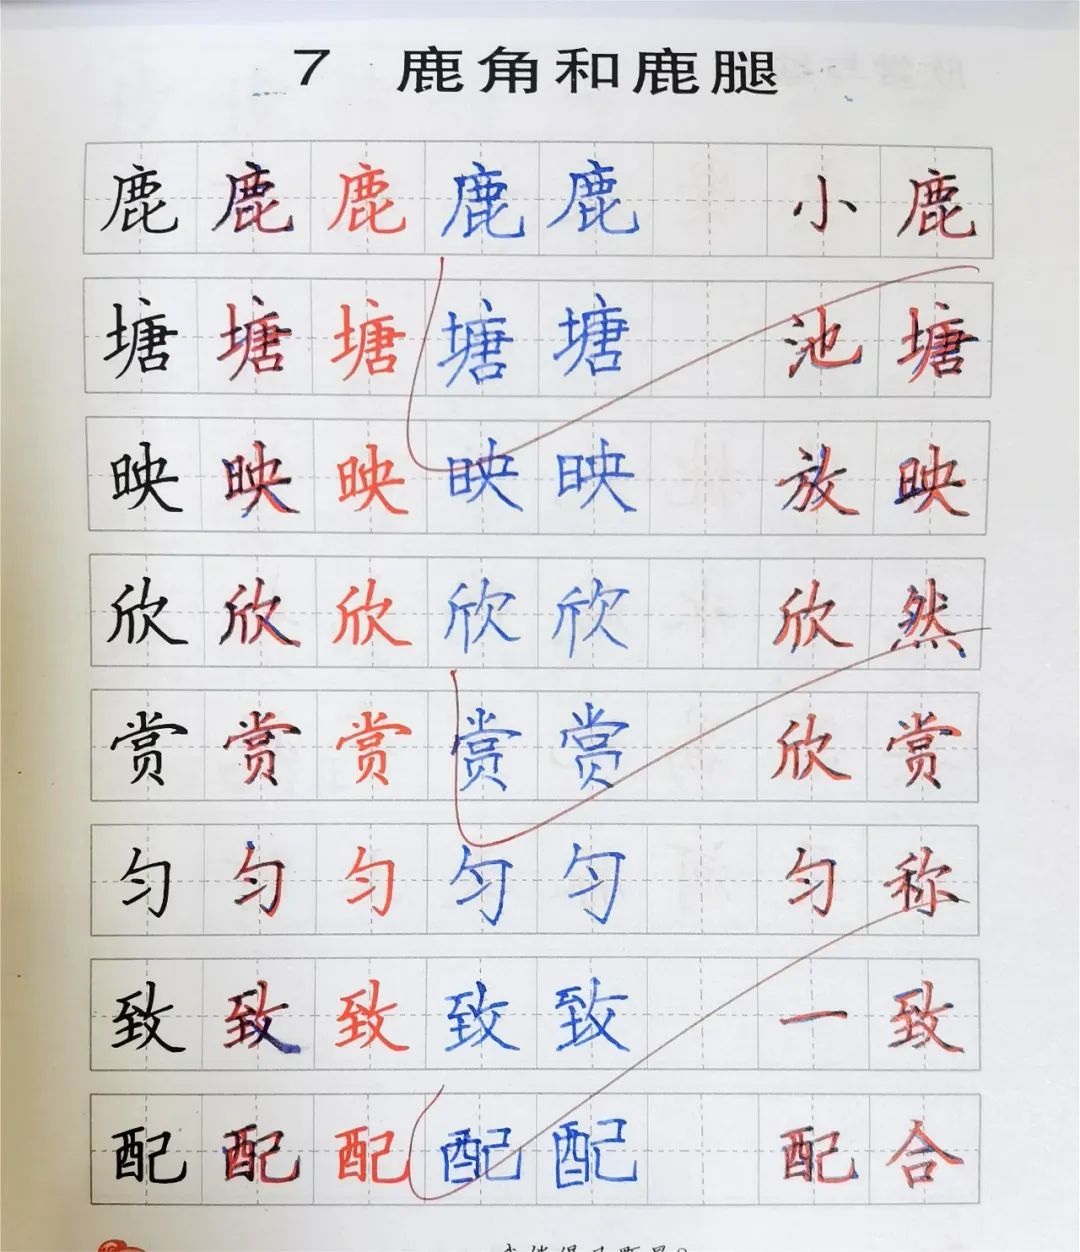 7 鹿角和鹿腿
鹿 鹿 鹿 鹿 鹿 小 鹿
塘 塘 塘 塘 塘 池 塘
映 映 映 映 映 放 映
欣 欣 欣 欣 欣 欣 然
赏 赏 赏 赏 赏 欣 赏
匀 匀 匀 匀 匀 匀 称
致 致 致 致 致 一 致
配 配 配 配 配 配 合